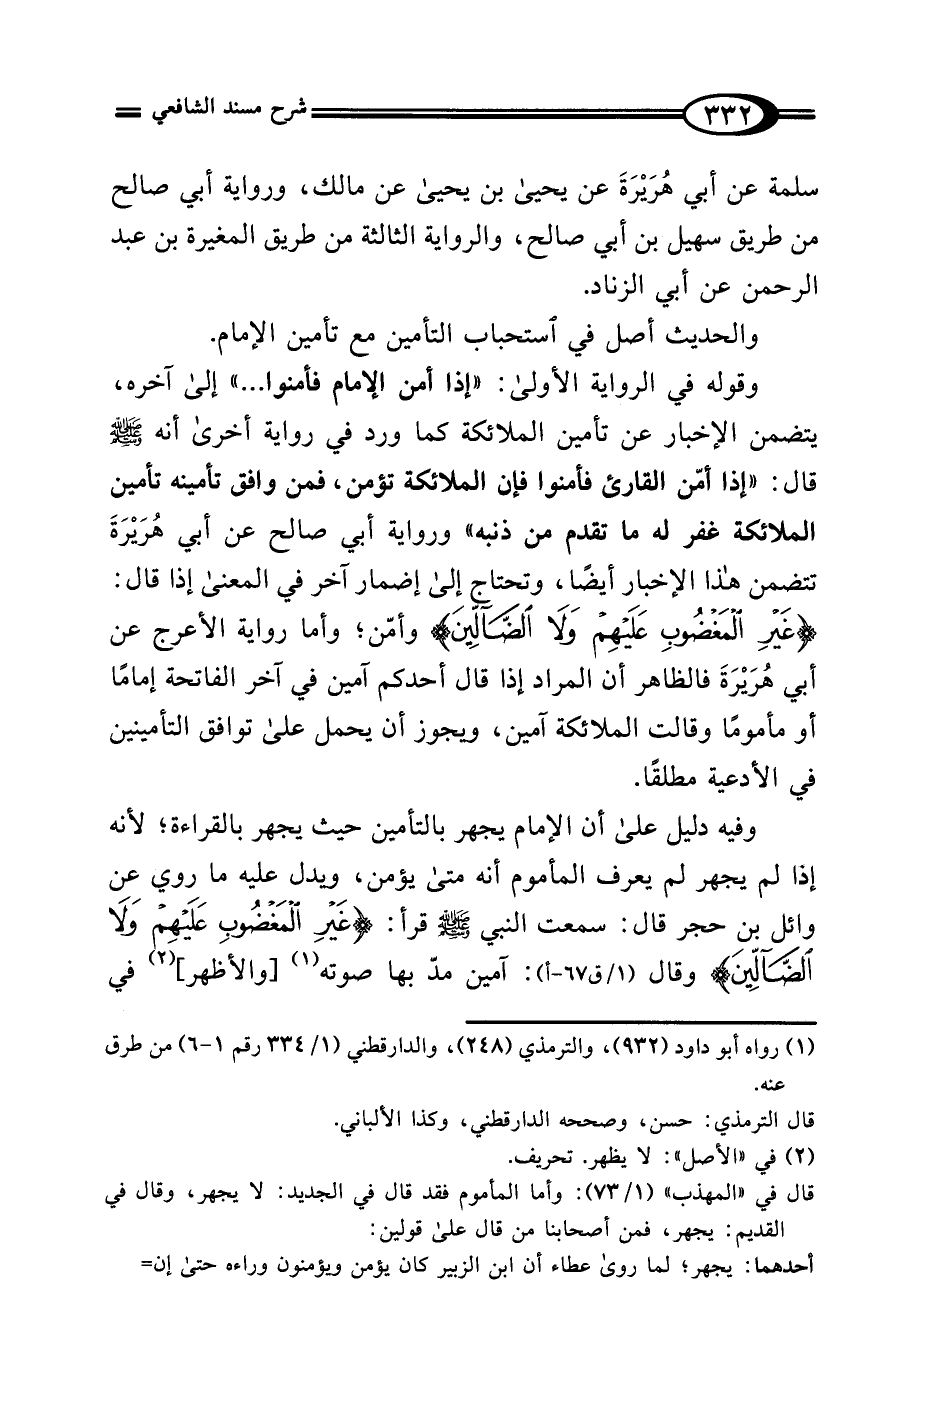 شرح مسند الشافعي
٣٣٢
سلمة عن أبي هُرَيْرَةَ عن يحيىٰ بن يحيىٰ عن مالك، ورواية أبي صالح
من طريق سهيل بن أبي صالح، والرواية الثالثة من طريق المغيرة بن عبد
الرحمن عن أبي الزناد.
والحديث أصل في ٱستحباب التأمين مع تأمين الإمام.
وقوله في الرواية الأولىٰ: «إذا أمن الإمام فأمنوا...» إلىٰ آخره،
يتضمن الإخبار عن تأمين الملائكة كما ورد في رواية أخرىٰ أنه ﷺ
قال: «إذا أمّن القارئ فأمنوا فإن الملائكة تؤمن، فمن وافق تأمينه تأمين
الملائكة غفر له ما تقدم من ذنبه» ورواية أبي صالح عن أبي هُرَيْرَةَ
تتضمن هٰذا الإخبار أيضًا، وتحتاج إلىٰ إضمار آخر في المعنىٰ إذا قال:
﴿غَيْرِ ٱلْمَغْضُوبِ عَلَيْهِمْ وَلَا ٱلضَّآلِّينَ﴾ وأمّن؛ وأما رواية الأعرج عن
أبي هُرَيْرَةَ فالظاهر أن المراد إذا قال أحدكم آمين في آخر الفاتحة إمامًا
أو مأمومًا وقالت الملائكة آمين، ويجوز أن يحمل علىٰ توافق التأمينين
في الأدعية مطلقًا.
وفيه دليل علىٰ أن الإمام يجهر بالتأمين حيث يجهر بالقراءة؛ لأنه
إذا لم يجهر لم يعرف المأموم أنه متىٰ يؤمن، ويدل عليه ما روي عن
وائل بن حجر قال: سمعت النبي ﷺ قرأ: ﴿غَيْرِ ٱلْمَغْضُوبِ عَلَيْهِمْ وَلَا
ٱلضَّآلِّينَ﴾ وقال (١/ق٦٧-أ): آمين مدّ بها صوته(١) [والأظهر](٢) في
(١) رواه أبو داود (٩٣٢)، والترمذي (٢٤٨)، والدارقطني (١/ ٣٣٤ رقم ١-٦) من طرق
عنه.
قال الترمذي: حسن، وصححه الدارقطني، وكذا الألباني.
(٢) في «الأصل»: لا يظهر. تحريف.
قال في «المهذب» (١/ ٧٣): وأما المأموم فقد قال في الجديد: لا يجهر، وقال في
القديم: يجهر، فمن أصحابنا من قال علىٰ قولين:
أحدهما: يجهر؛ لما روىٰ عطاء أن ابن الزبير كان يؤمن ويؤمنون وراءه حتىٰ إن=